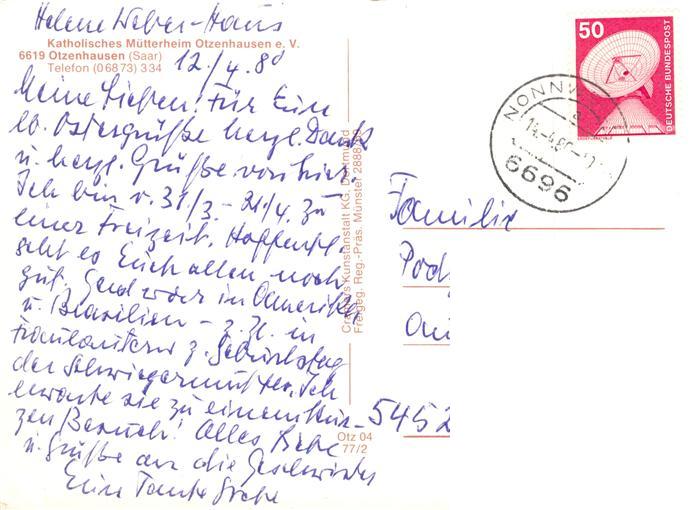 Helene Weber-Haus
Katholisches Mütterheim Otzenhausen e. V.
6619 Otzenhausen (Saar)
Telefon (0 68 73) 3 34
12./4. 80
Meine Lieben! Für Eure
lb. Ostergrüße herzl. Dank
u. herzl. Grüße von hier.
Ich bin v. 31/3. - 21/4. zu
einer Freizeit. Hoffentl.
geht es Euch allen noch
gut. Gerd war in Amerika
u. Brasilien - z. Zt. in
z. Geburtstag
der Schwiegermutter. Ich
erwarte sie zu einem kur-
zen Besuch! Alles Liebe
u. Grüße an die Geschwister
Eure Tante Grete
Cramers Kunstanstalt KG, Dortmund
Freigeg. Reg.-Präs. Münster
Otz 04
77/2
50
DEUTSCHE BUNDESPOST
NONNW
14.-4.80
6696
Familie
Pod
5452